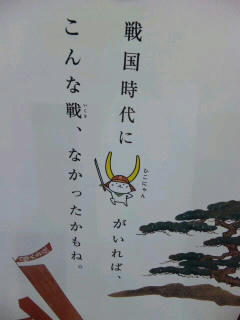 戦国時代に
ひこにゃん
がいれば、
こんな戦、なかったかもね。
いくさ